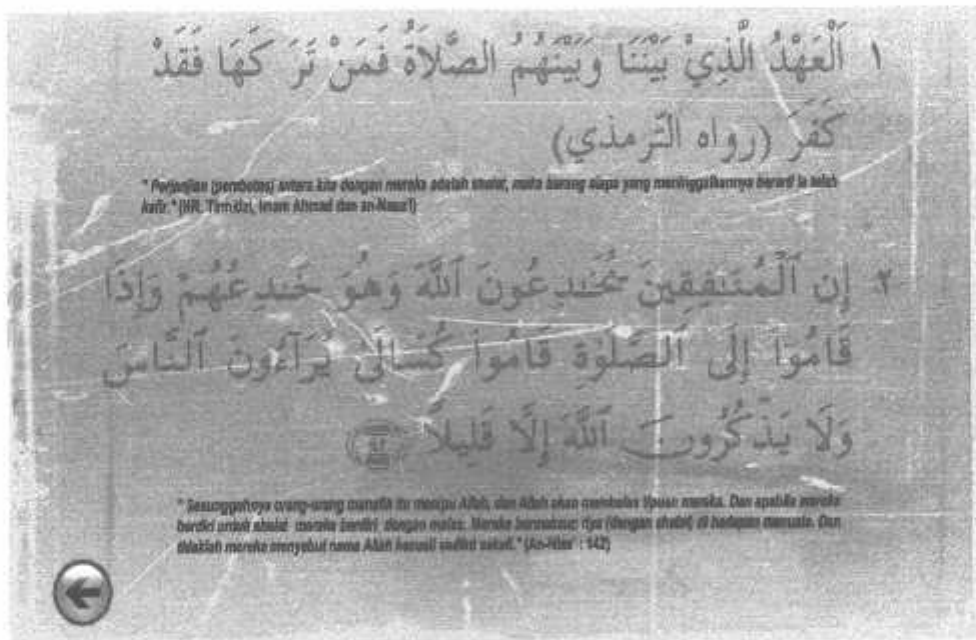 ١ اَلْعَهْدُ الَّذِيْ بَيْنَنَا وَبَيْنَهُمُ الصَّلاَةُ فَمَنْ تَرَ كَهَا فَقَدْ
كَفَرَ (رواه التّرمذي)
" Perjanjian (pembatas) antara kita dengan mereka adalah shalat, maka barang siapa yang meninggalkannya berarti ia telah
kafir." (HR. Tirmidzi, Imam Ahmad dan an-Nasa'i)
٢ إِن ٱلْمُنَـٰفِقِينَ يُخَـٰدِعُونَ ٱللَّهَ وَهُوَ خَـٰدِعُهُمْ وَإِذَا
قَامُوٓا۟ إِلَى ٱلصَّلَوٰةِ قَامُوا۟ كُسَالَىٰ يُرَآءُونَ ٱلنَّاسَ
وَلَا يَذْكُرُونَ ٱللَّهَ إِلَّا قَلِيلًا
" Sesungguhnya orang-orang munafik itu menipu Allah, dan Allah akan membalas tipuan mereka. Dan apabila mereka
berdiri untuk shalat mereka berdiri dengan malas. Mereka bermaksud riya (dengan shalat) di hadapan manusia. Dan
tidaklah mereka menyebut nama Allah kecuali sedikit sekali." (An-Nisa' : 142)